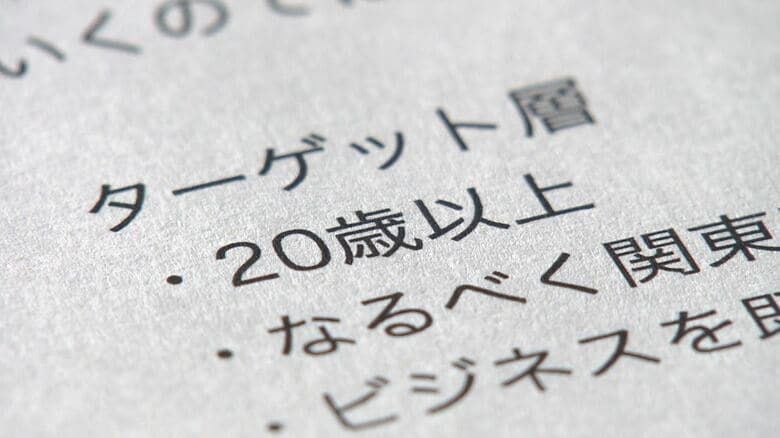 いくので
ターゲット層
・20歳以上
・なるべく関東
・ビジネスを